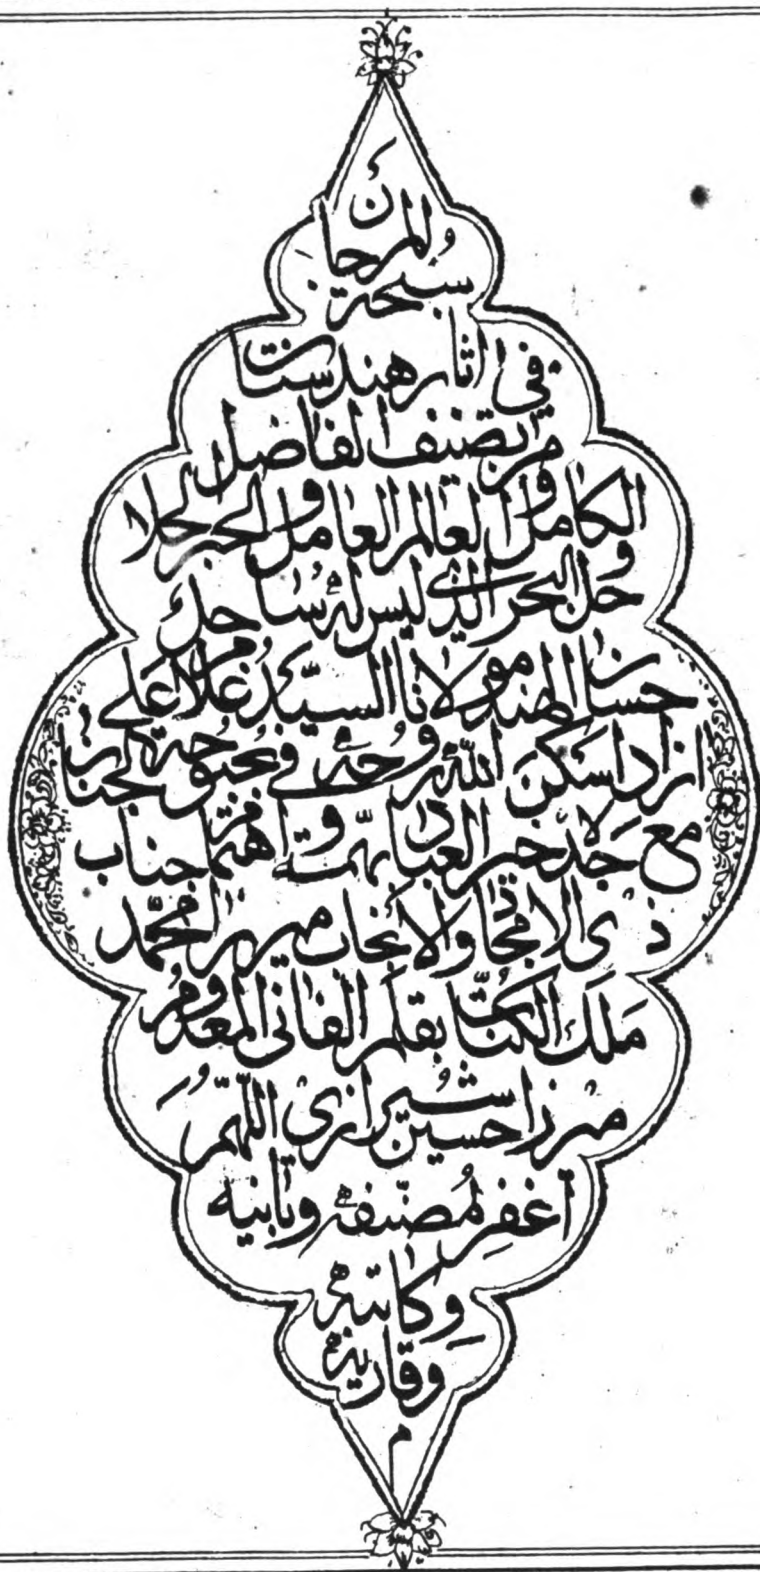 سُبحة المرجان
في اثار هندستان
من تصنيف الفاضل
الكامل و العالم العامل و الحبر الحلا
حل و البحر الذي ليس له ساحل
حسان الهند مولانا السيّد غلام علي
ازاد اسكن الله روحه في بحبوحة الجنان
مع جده خير العباد جناب
ذي الامجاد و الانجاب ميرزا محمّد
مَلك الكتّاب بقلم الفاني المعدوم
ميرزا حسين شيرازي اللهمّ
اغفِر مُصنّفه و بانيه
وِكاتبه
وقاريه
م